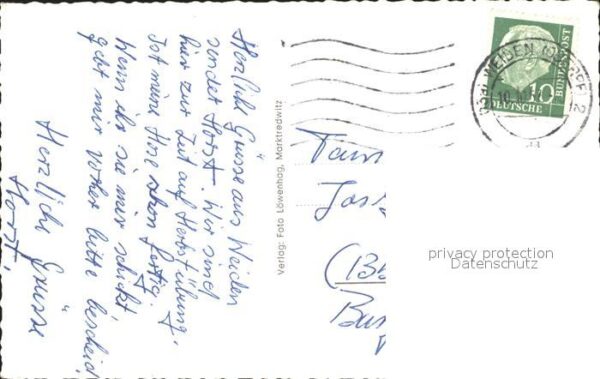 Herzliche Grüsse aus Weiden
sendet Horst. Wir sind
hier zur Zeit auf Herbstübung.
Ist meine Hose schon fertig.
Wenn ihr sie mir schickt
gebt mir vorher bitte bescheid
Herzliche Grüsse
Horst.
Verlag: Foto Löwenhag, Marktredwitz
WEIDEN (OBERPF) 2
10
DEUTSCHE
BUNDESPOST
Fam
(Bb
privacy protection
Datenschutz